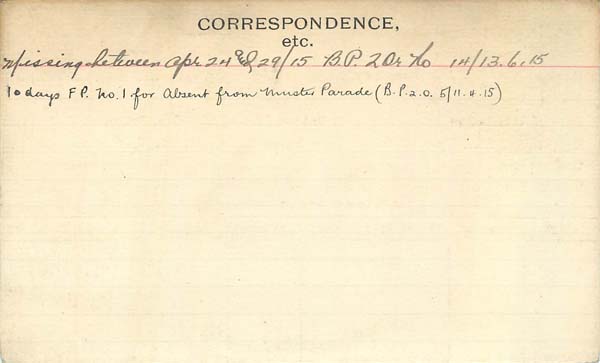 CORRESPONDENCE,
etc.
Missing between Apr 24 & 29/15 B.P. 2 Or No 14/13.6.15
10 days F P. No. 1 for Absent from Muster Parade (B.P. 2.O. 5/11.4.15)